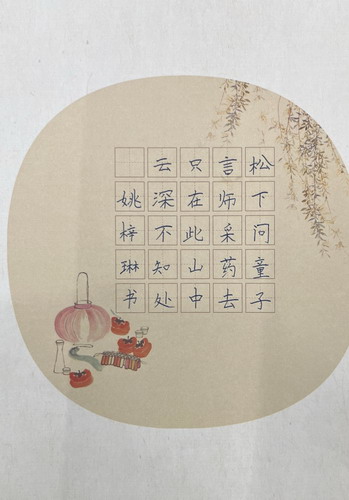 松下问童子
言师采药去
只在此山中
云深不知处
姚梓琳书